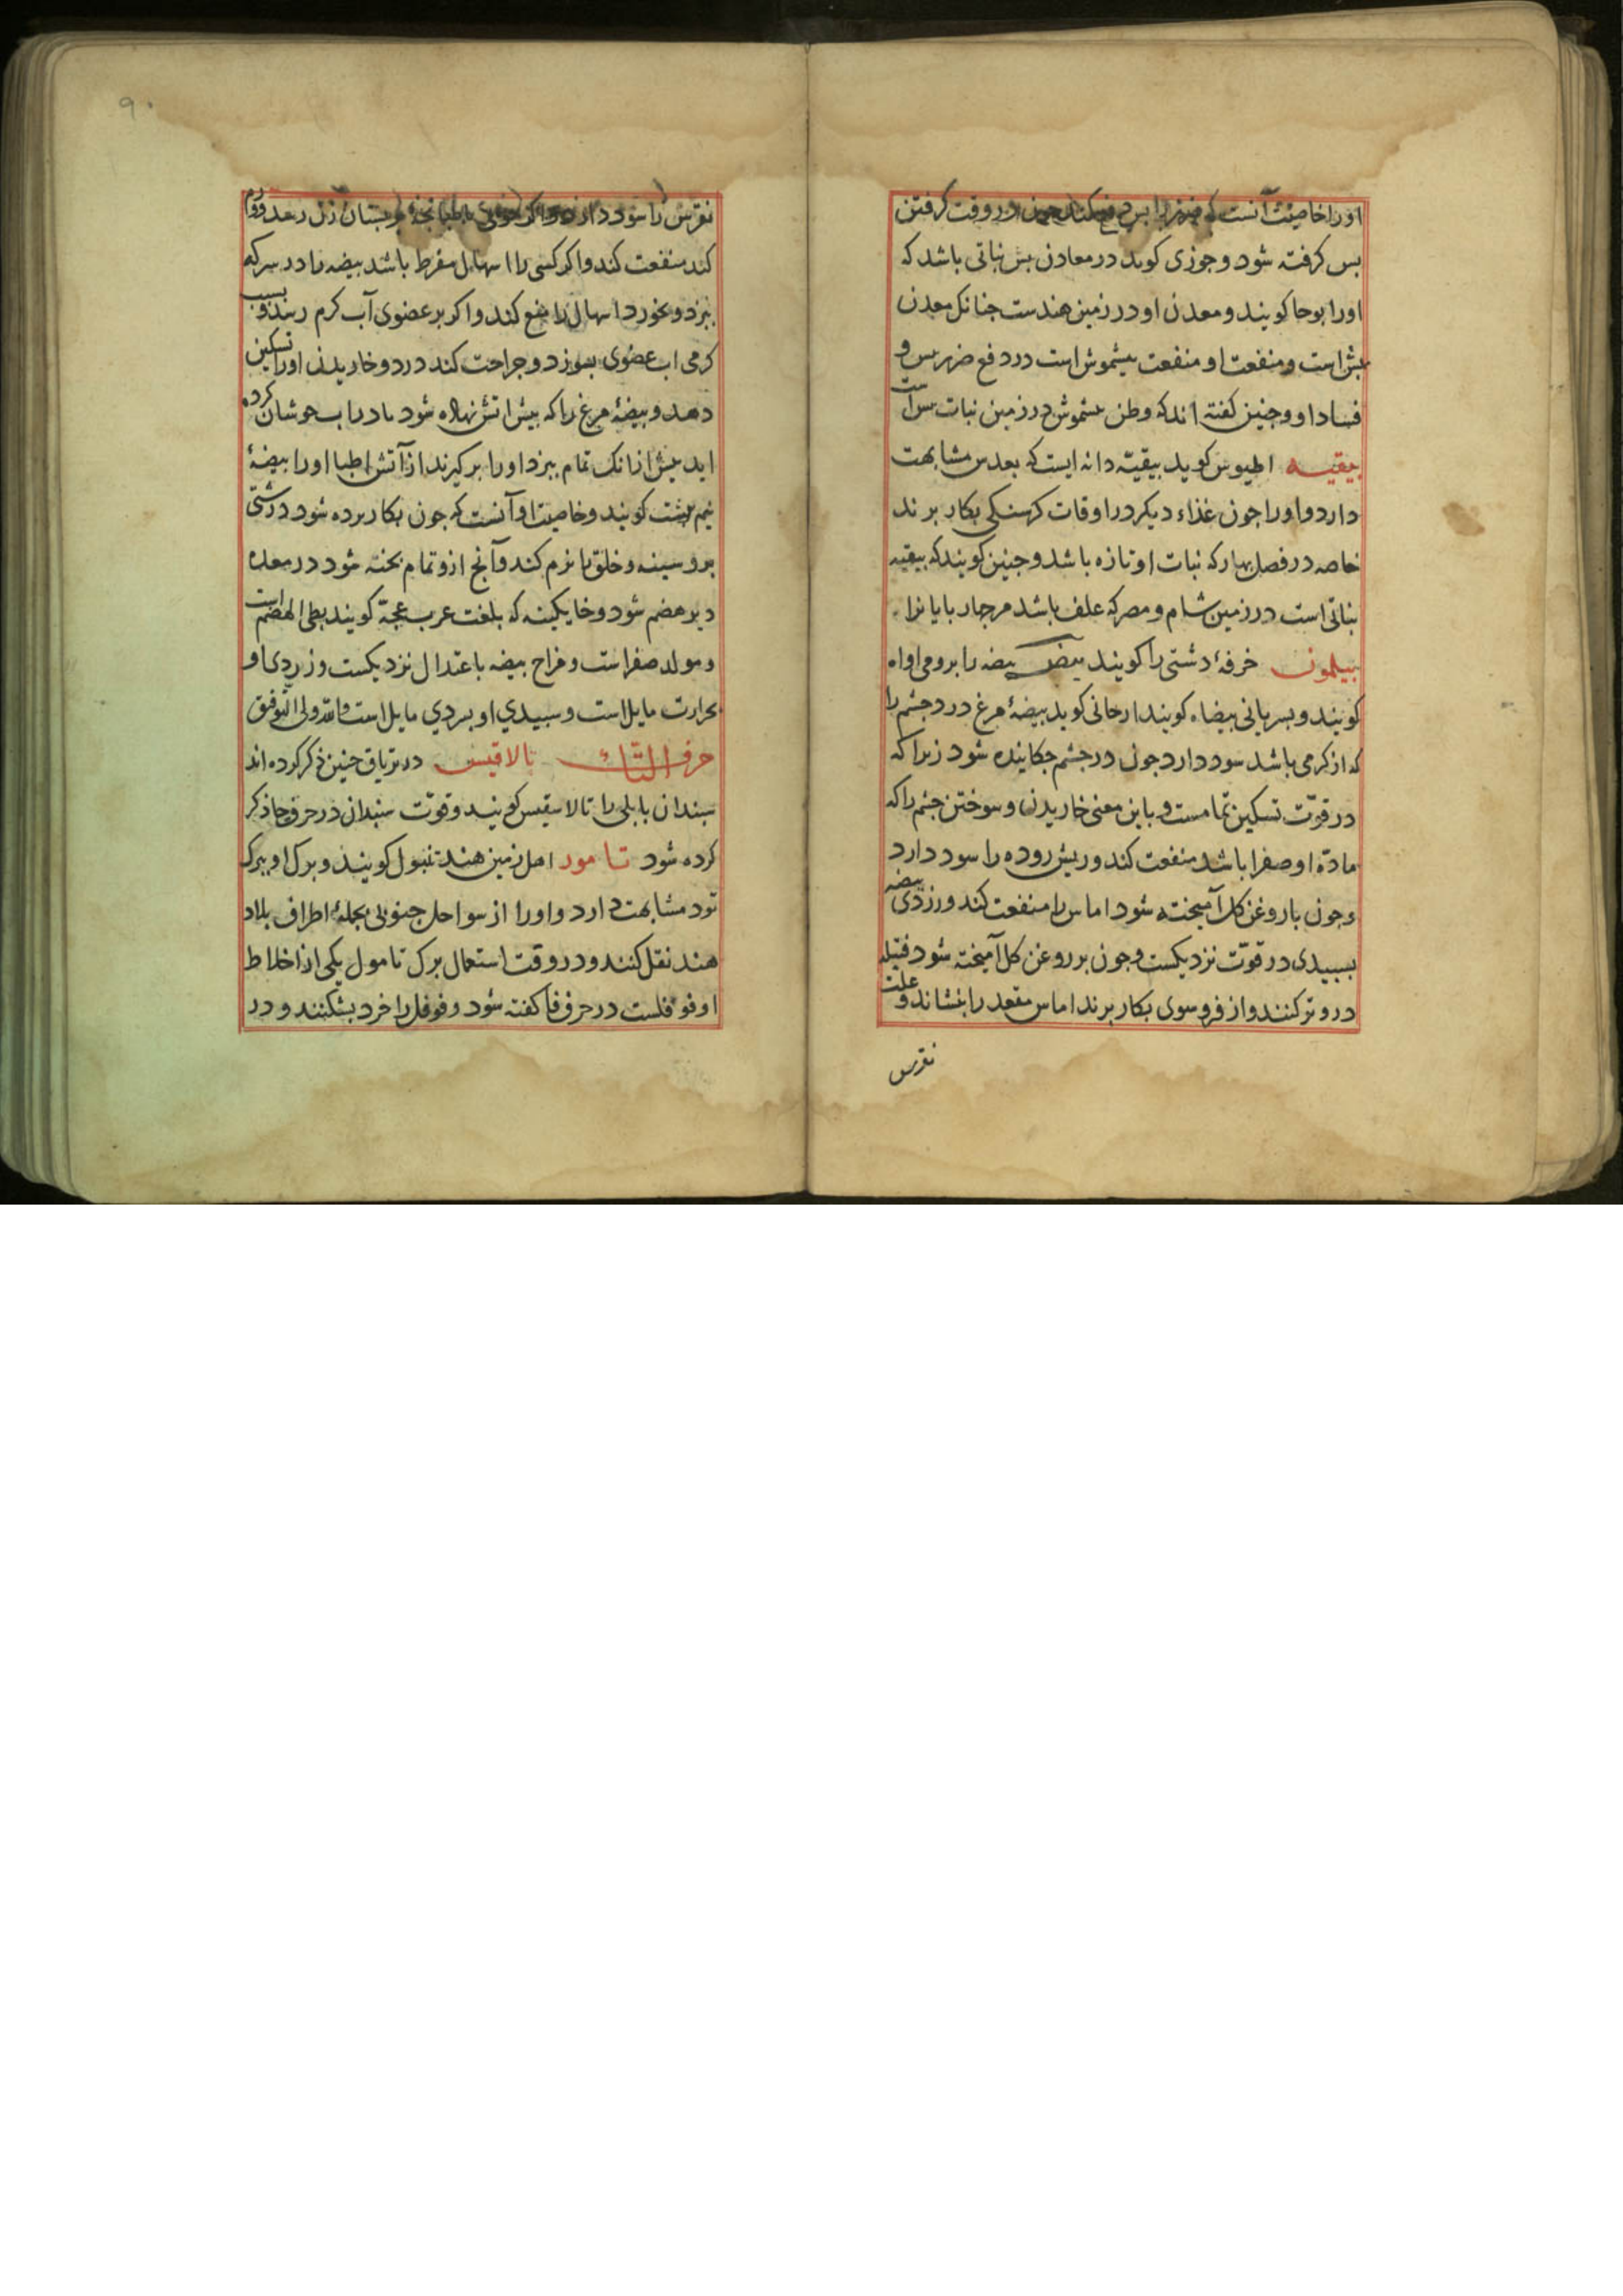 اورا خاصیت آنست که ضرر را بس دفع کند در وقت گرفتن
بس گرفته شود و جوزی کوید در معادن بش نباتی باشد که
اورا بوحا کویند و معدن او در زمین هندست جنانک معدن
بش است و منفعت او منفعت بیشموش است در دفع ضرر بس و
فساد او و جنین کفته اند که وطن بیشموش در زمین نبات بس است
بیقیه اطیوس کوید بیقیّه دانه ایست که بعدس مشابهت
دارد و اورا جون غذاء دیکر در اوقات کرسنکی بکار برند
خاصه در فصل بهار که نبات او تازه باشد و جنین کویند که بیقیه
نباتی است در زمین شام و مصر که علف باشد مر جهار بایانرا
بیلمون خرفهٔ دشتی را کویند بیض بیضه را برومی اواه
کویند و بسریانی بیضاه کویند ارجانی کوید بیضهٔ مرغ درد جشم را
که از کرمی باشد سود دارد جون در جشم جکانیده شود زیرا که
در قوّت تسکین تمامست و باین معنی خاریدن و سوختن جشم را که
مادّهٔ او صفرا باشد منفعت کند و ریش روده را سود دارد
و جون با روغن کل آمیخته شود اماس را منفعت کند و زردی بیضه
بسبیدی در قوّت نزدیکست و جون بر روغن کل آمیخته شود فتیله
درو تر کنند و از فروسوی بکار برند اماس مقعد را بنشاند و علت
نقرس
۹۰
نقرس را سود دارد و اکر خونی بستان زن رسد و ورم
کند منفعت کند و اکر کسی را اسهال مفرط باشد بیضه را در سرکه
ببزد و بخورد اسهال را دفع کند و اکر بر عضوی آب کرم رسد و بسبب
کرمی اب عضوی بسوزد و جراحت کند درد و خاریدن اورا تسکین
دهد و بیضهٔ مرغ را که بیش اتش نهاده شود یا در اب جوشان کرده
اید بیش از انک تمام ببزد اورا بر کیرند از آتش اطبا اورا بیضهٔ
نیم برشت کویند و خاصیت او آنست که جون بکار برده شود درشتی
برو سینه و حلق را نرم کند و آنج ازو تمام بخته شود در معده
دیر هضم شود و خایکینه که بلغت عرب عجّة کویند بطی الهضم است
و مولد صفراست و مزاج بیضه باعتدال نزدیکست و زردی او
بحرارت مایل است و سبیدی او بسردی مایل است والله ولی التوفیق
حرف التاء تالاقیس در تریاق جنین ذکر کرده اند
سبندان بابلی را تالاسقیس کویند و قوّت سبندان در حرف حا ذکر
کرده شود تامور اهل زمین هند تنبول کویند و برک او ببرک
تود مشابهت دارد و اورا از سواحل جنوبی بجملهٔ اطراف بلاد
هند نقل کنند و در وقت استعمال برک تامول یکی از اخلاط
او فوفلست در حرف فا کفته شود و فوفل را خرد بشکنند و در